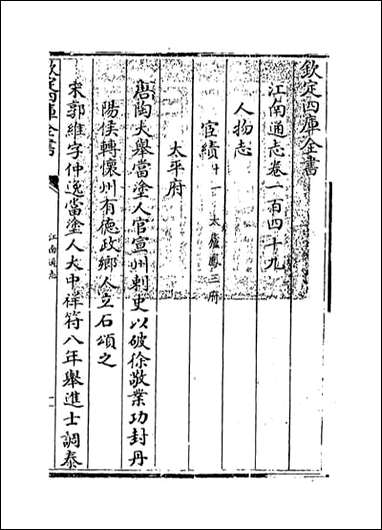 欽定四庫全書
江南通志卷一百四十九
人物志
宦績十一 太廬鳳三府
太平府
唐陶大舉當塗人官宣州刺史以破徐敬業功封丹
陽侯轉懷州有德政鄉人立石頌之
宋郭維字仲逸當塗人大中祥符八年舉進士調泰
欽定四庫全書
江南通志
一